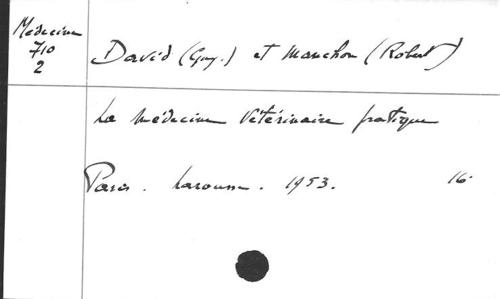 Médecine
710
2
David (Guy.) et Manchon (Robert)
La Médecine Vétérinaire pratique
Paris. Larousse. 1953. 16°